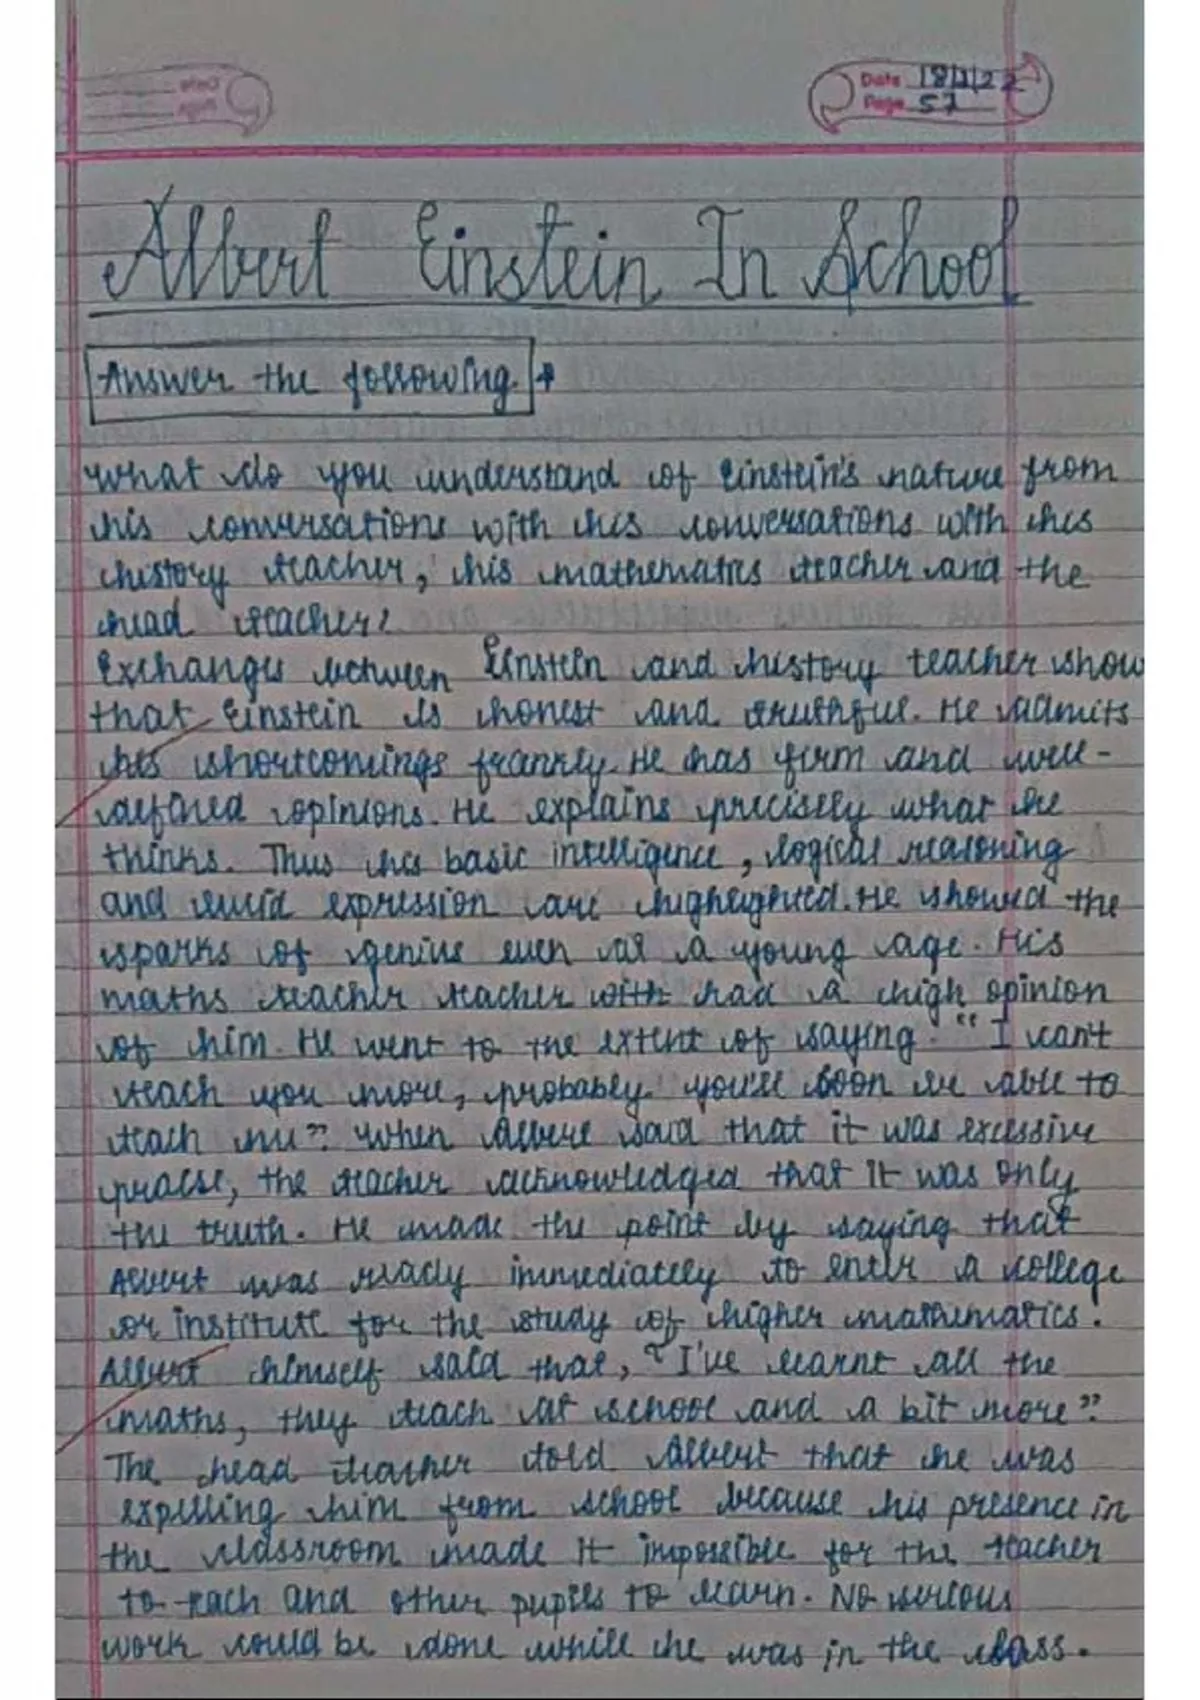 Date 18/1/22
Page 57
Albert Einstein In School
Answer the following.
What do you understand of Einstein's nature from
his conversations with his conversations with his
history teacher, his mathematics teacher and the
head teacher?
Exchanges between Einstein and history teacher show
that Einstein is honest and truthful. He admits
his shortcomings frankly. He has firm and well-
defined opinions. He explains precisely what he
thinks. Thus his basic intelligence, logical reasoning
and lucid expression are highlighted. He showed the
sparks of genius even at a young age. His
maths teacher teacher with had a high opinion
of him. He went to the extent of saying. "I can't
teach you more, probably you'll soon be able to
teach me". When Albert said that it was excessive
praise, the teacher acknowledged that it was only
the truth. He made the point by saying that
Albert was ready immediately to enter a college
or institute for the study of higher mathematics.
Albert himself said that, "I've learnt all the
maths, they teach at school and a bit more".
The head teacher told Albert that he was
expelling him from school because his presence in
the classroom made it impossible for the teacher
to teach and other pupils to learn. No serious
work could be done while he was in the class.